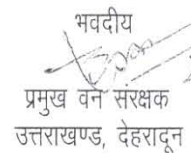 भवदीय
प्रमुख वन संरक्षक
उत्तराखण्ड, देहरादून